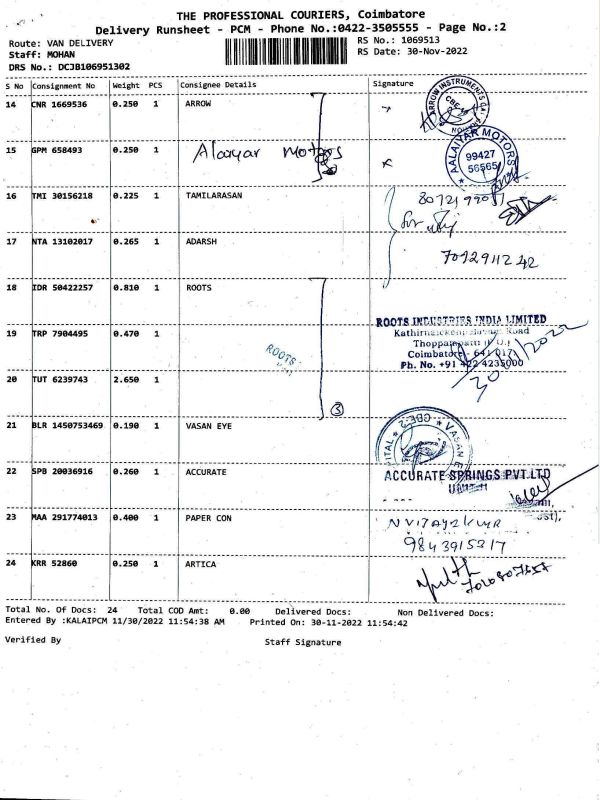 THE PROFESSIONAL COURIERS, Coimbatore
Delivery Runsheet - PCM - Phone No.:0422-3505555 - Page No.:2
Route: VAN DELIVERY RS No.: 1069513
Staff: MOHAN RS Date: 30-Nov-2022
DRS No.: DCJB106951302
S No Consignment No Weight PCS Consignee Details Signature
14 CNR 1669536 0.250 1 ARROW
ARROW INSTRUMENTS
15 GPM 658493 0.250 1 Alaiyar Motors
AALAIYAR MOTORS
99427
56565
16 TMI 30156218 0.225 1 TAMILARASAN
17 NTA 13102017 0.265 1 ADARSH
7092911242
18 IDR 50422257 0.810 1 ROOTS
ROOTS INDUSTRIES INDIA LIMITED
19 TRP 7904495 0.470 1
Road
Thoppampatti (P.O.)
Coimbatore - 641 017
Ph. No. +91 422 4235000
ROOTS
20 TUT 6239743 2.650 1
3
21 BLR 1450753469 0.190 1 VASAN EYE
CBE-2 VASAN
22 SPB 20036916 0.260 1 ACCURATE
ACCURATE SPRINGS PVT.LTD
UNIT-II
23 MAA 291774013 0.400 1 PAPER CON
N VIJAYAKUMAR
9843915317
24 KRR 52860 0.250 1 ARTICA
Total No. Of Docs: 24 Total COD Amt: 0.00 Delivered Docs: Non Delivered Docs:
Entered By :KALAIPCM 11/30/2022 11:54:38 AM Printed On: 30-11-2022 11:54:42
Verified By Staff Signature